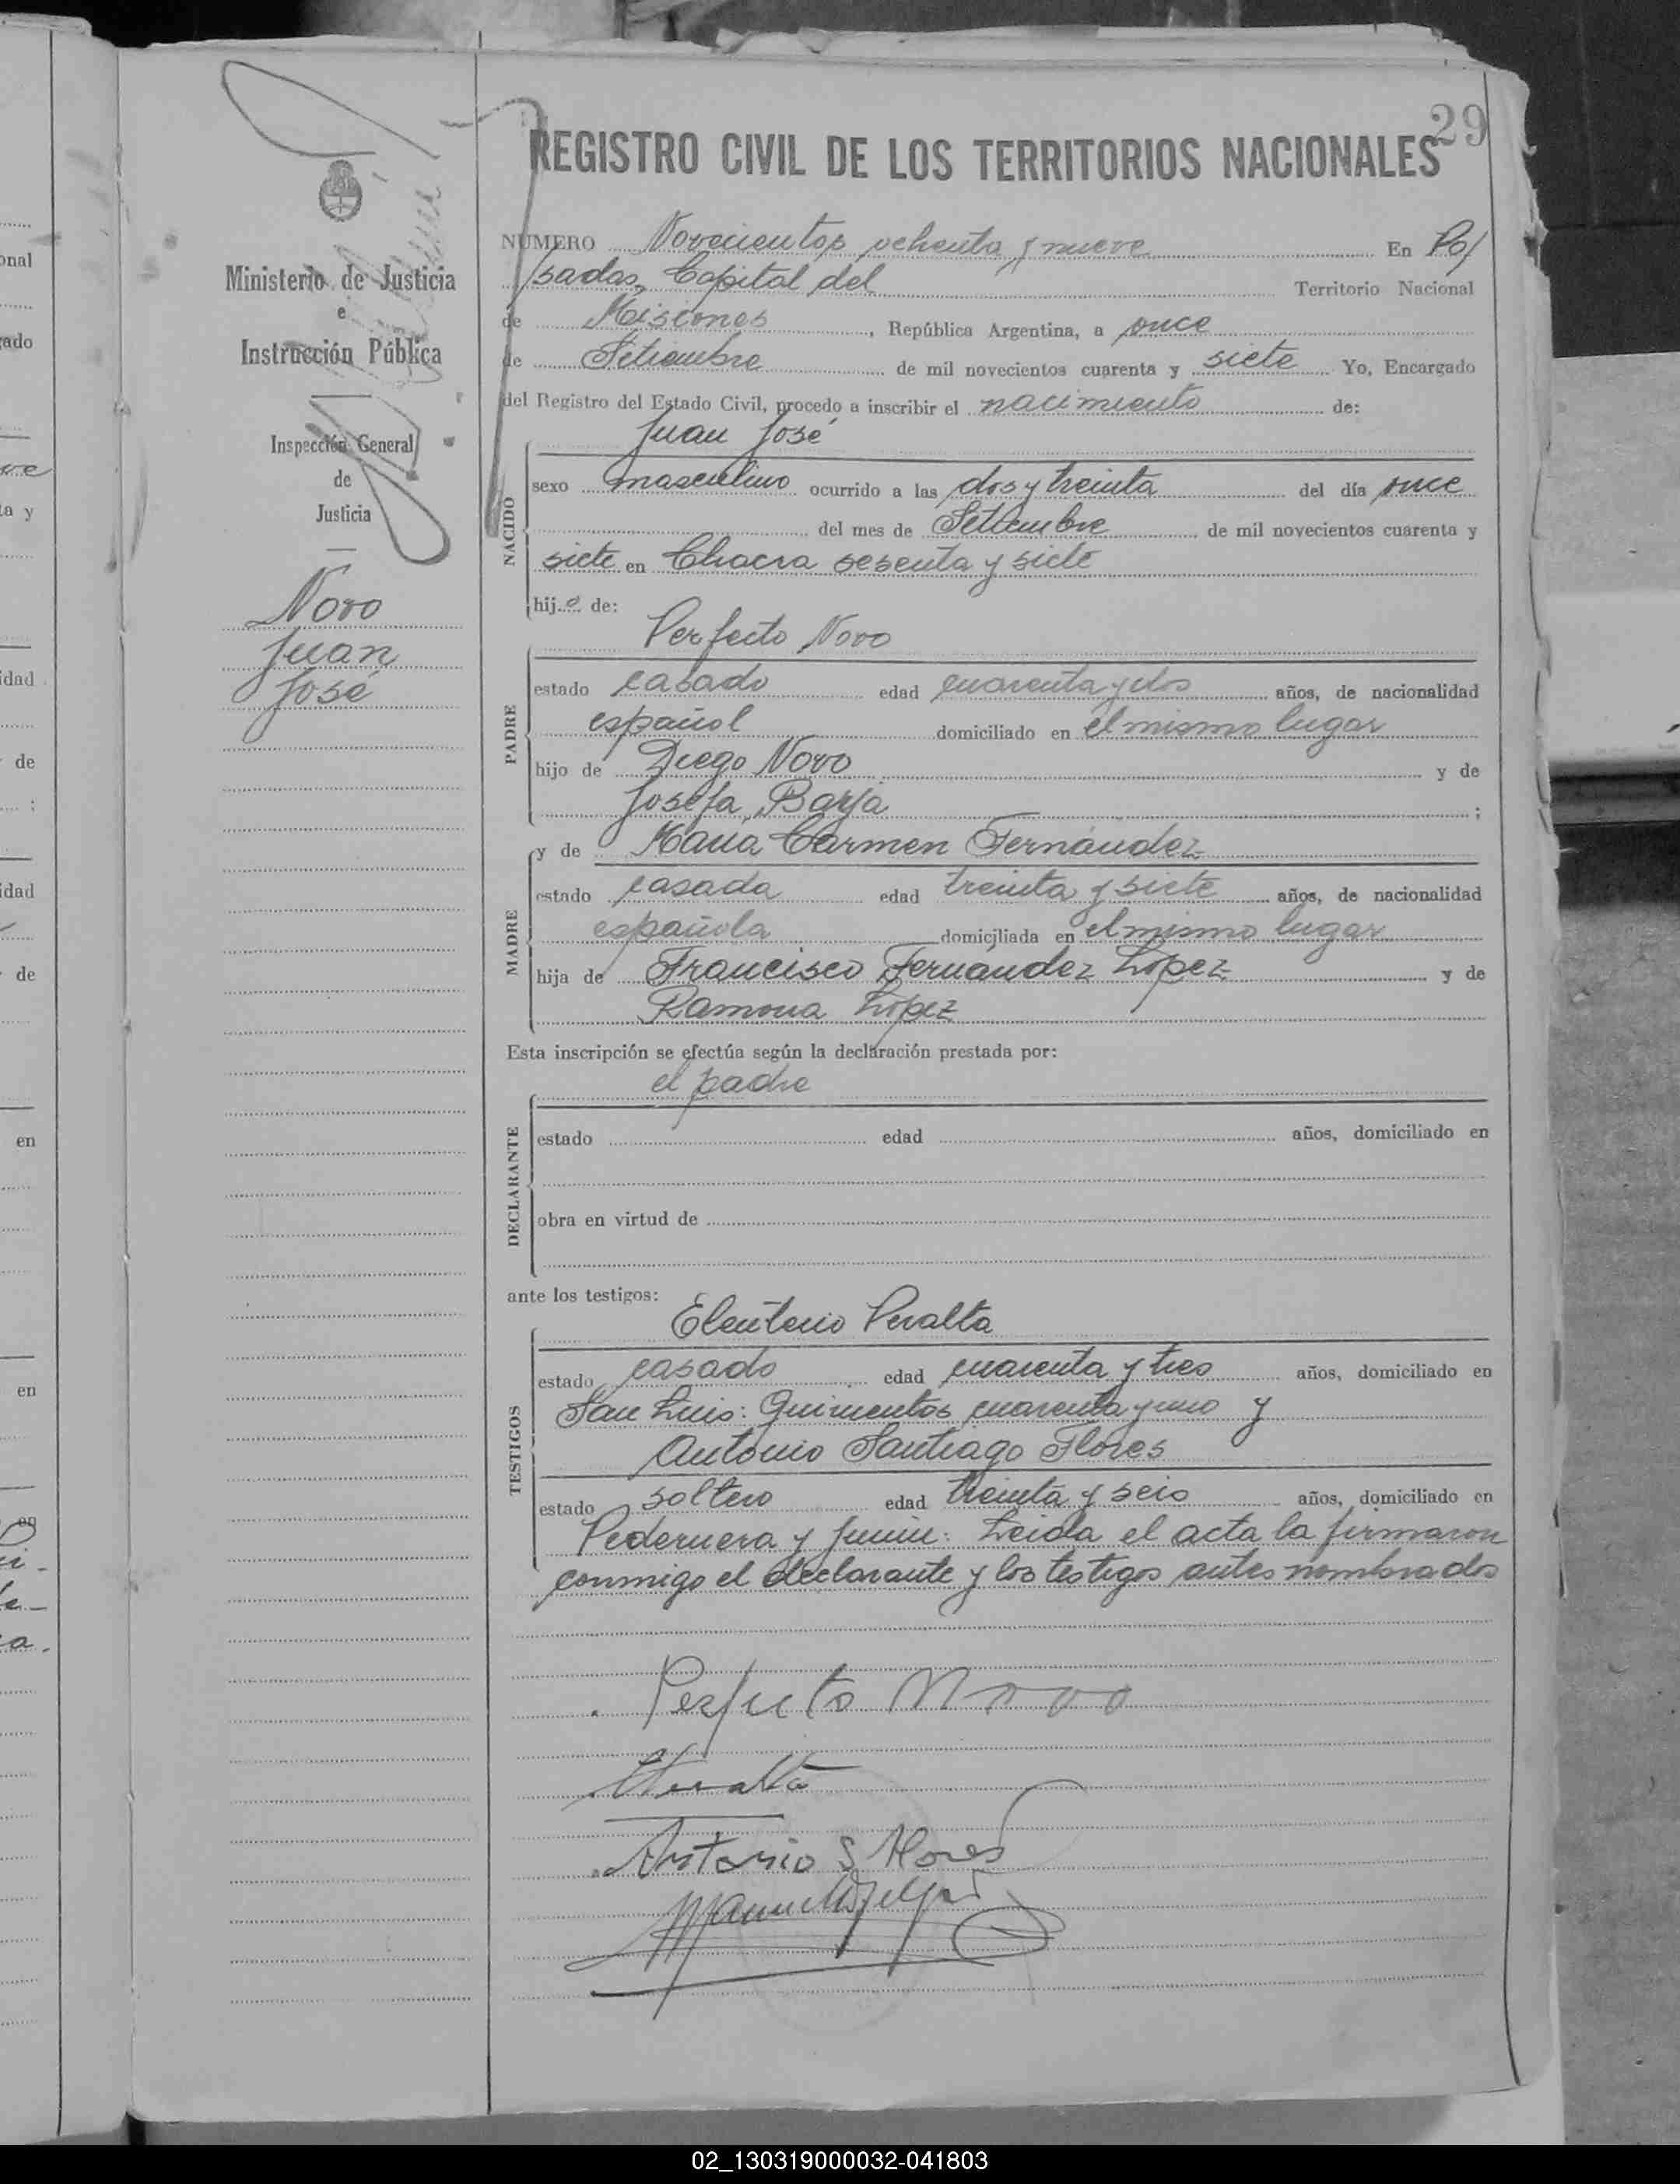 29
REGISTRO CIVIL DE LOS TERRITORIOS NACIONALES
Ministerio de Justicia
e
Instrucción Pública
Inspección General
de
Justicia
Novo
Juan
José
NUMERO Novecientos ochenta y nueve En Po/
/sadas, Capital del Territorio Nacional
de Misiones, República Argentina, a once
de Setiembre de mil novecientos cuarenta y siete Yo, Encargado
del Registro del Estado Civil, procedo a inscribir el nacimiento de:
Juan José
NACIDO
sexo masculino ocurrido a las dos y treinta del día once
del mes de Setiembre de mil novecientos cuarenta y
siete en Chacra sesenta y siete
hijo de:
Perfecto Novo
PADRE
estado casado edad cuarenta y dos años, de nacionalidad
español domiciliado en el mismo lugar
hijo de Diego Novo y de
Josefa Barja ;
y de María Carmen Fernández
MADRE
estado casada edad treinta y siete años, de nacionalidad
española domiciliada en el mismo lugar
hija de Francisco Fernández López y de
Ramona López
Esta inscripción se efectúa según la declaración prestada por:
el padre
DECLARANTE
estado edad años, domiciliado en
obra en virtud de
ante los testigos:
Eleuterio Peralta
TESTIGOS
estado casado edad cuarenta y tres años, domiciliado en
San Luis: Quinientos cuarenta y uno y
Antonio Santiago Flores
estado soltero edad treinta y seis años, domiciliado en
Pedernera y Junín. Leída el acta la firmaron
conmigo el declarante y los testigos antes nombrados
Perfecto Novo
Antonio S Flores
onal
gado
ta y
idad
de
:
idad
de
en
en
en
02_130319000032-041803